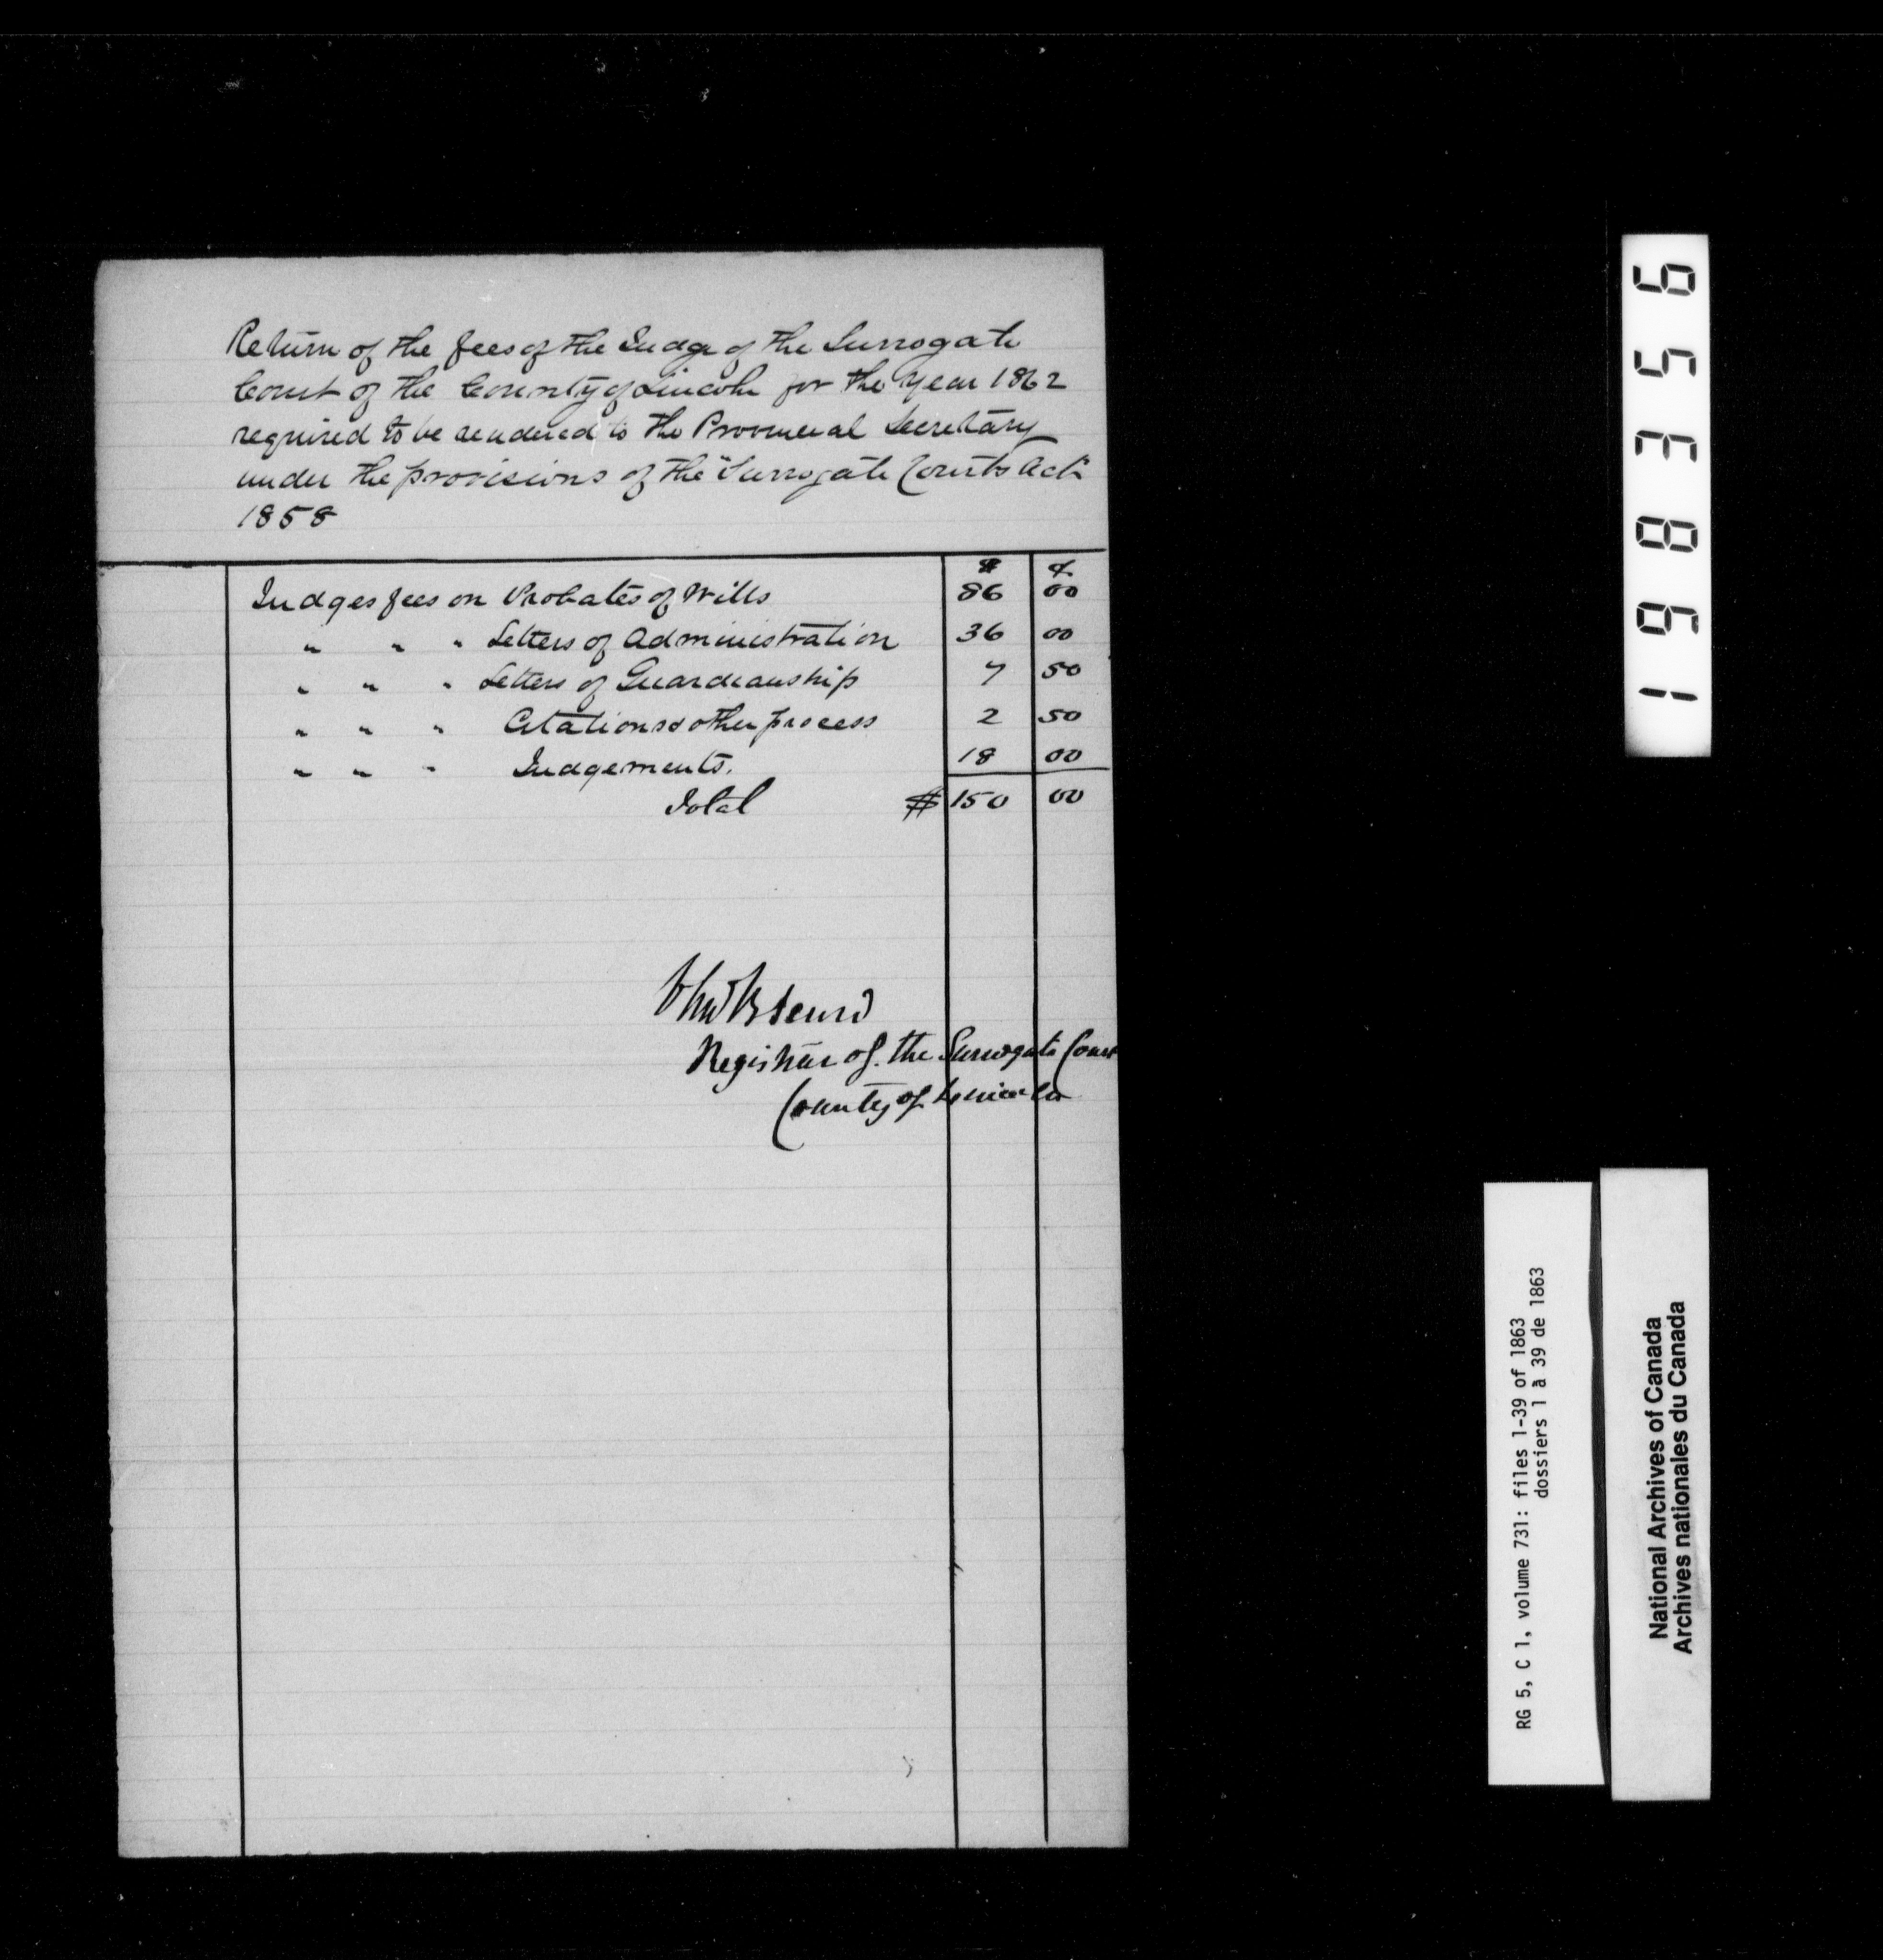 Return of the fees of the Judge of the Surrogate
Court of the County of Lincoln for the year 1862
required to be rendered to the Provincial Secretary
under the provisions of the "Surrogate Courts Act"
1858
$ ¢
Judges fees on Probates of Wills 86 00
" " " Letters of Administration 36 00
" " " Letters of Guardianship 7 50
" " " Citations & other process 2 50
" " " Judgements. 18 00
Total $ 150 00
Registrar of the Surrogate Court
County of Lincoln
198356
RG 5, C 1, volume 731: files 1-39 of 1863
dossiers 1 à 39 de 1863
National Archives of Canada
Archives nationales du Canada